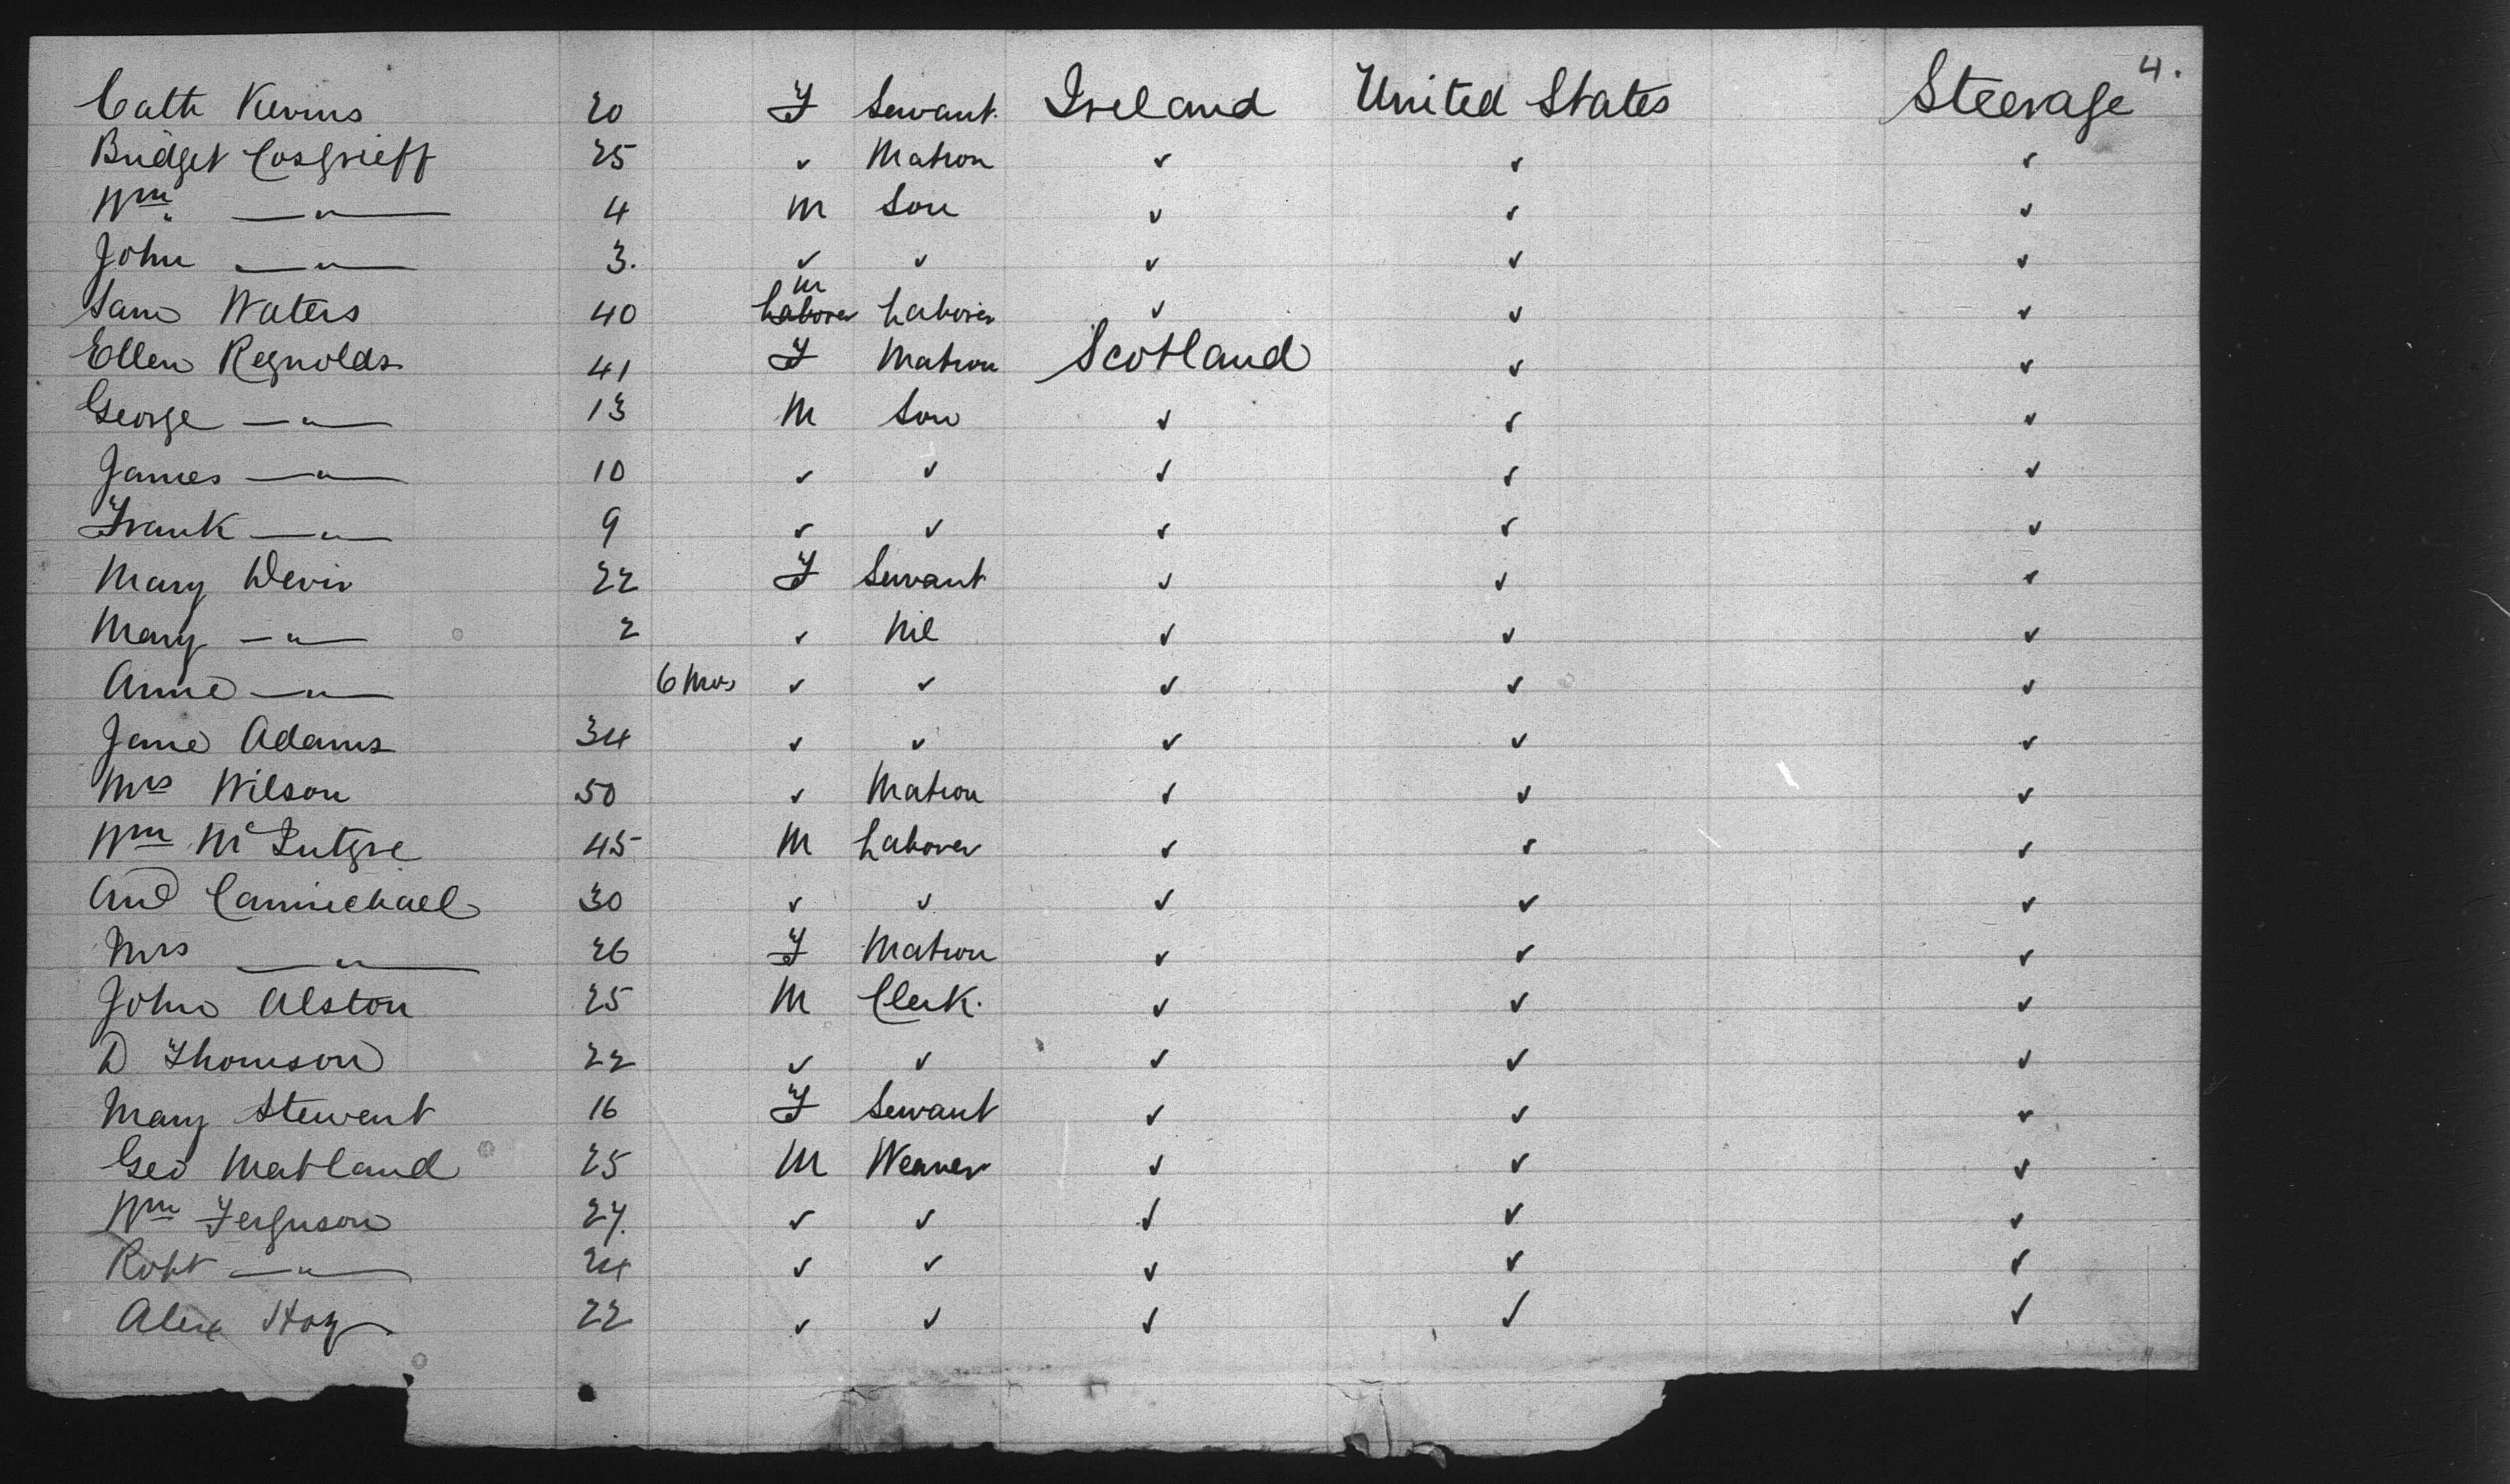 4.
Cath Kevins 20 F Servant. Ireland United States Steerage
Bridget Cosgrieff 25 ✓ Matron ✓ ✓ ✓
Wm — " — 4 M Son ✓ ✓ ✓
John — " — 3. ✓ ✓ ✓ ✓ ✓
m
Sam Waters 40 Laborer Laborer ✓ ✓ ✓
Ellen Reynolds 41 F Matron Scotland ✓ ✓
George — " — 13 M Son ✓ ✓ ✓
James — " — 10 ✓ ✓ ✓ ✓ ✓
Frank — " — 9 ✓ ✓ ✓ ✓ ✓
Mary Devir 22 F Servant ✓ ✓ ✓
Mary — " — 2 ✓ Nil ✓ ✓ ✓
Anne — " — 6 Mos ✓ ✓ ✓ ✓ ✓
Jane Adams 34 ✓ ✓ ✓ ✓ ✓
Mrs Wilson 50 ✓ Matron ✓ ✓ ✓
Wm McIntyre 45 M Laborer ✓ ✓ ✓
And Carmichael 30 ✓ ✓ ✓ ✓ ✓
Mrs — " — 26 F Matron ✓ ✓ ✓
John Alston 25 M Clerk. ✓ ✓ ✓
D Thomson 22 ✓ ✓ ✓ ✓ ✓
Mary Stewart 16 F Servant ✓ ✓ ✓
Geo Matland 25 M Weaver ✓ ✓ ✓
Wm Ferguson 27. ✓ ✓ ✓ ✓ ✓
Robt — " — 24 ✓ ✓ ✓ ✓ ✓
Alex Hoy 22 ✓ ✓ ✓ ✓ ✓